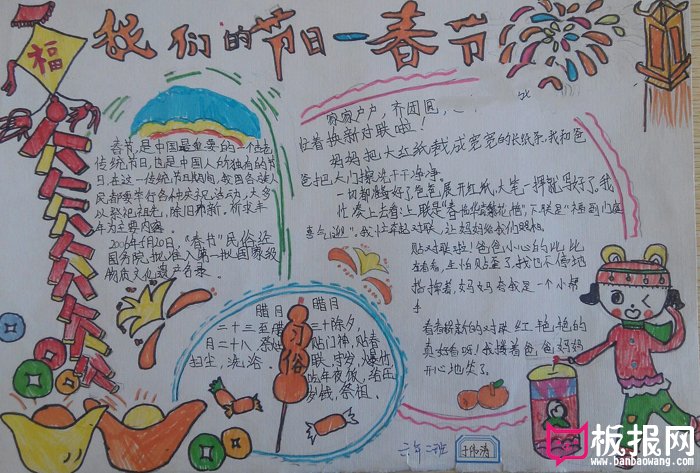 我们的节日—春节
福
春节,是中国最重要的一个古老
传统节日,也是中国人所独有的节
日。在这一传统节日期间,我国各族人
民都要举行各种庆祝活动,大多
以祭祀祖先,除旧布新,祈求丰
年为主要内容。
2006年5月20日,“春节”民俗经
国务院批准入第一批国家级
物质文化遗产名录。
家家户户,齐团圆,
忙着换新对联啦!
妈妈把大红纸裁成宽宽的长纸条,我和爸
爸把大门擦洗干干净净。
一切都准备好了,爸爸展开红纸,大笔一挥就写好了,我
忙凑上去看:上联是
贴对联啦!爸爸小心的比比
左看看,生怕贴歪了,我也不停地
指挥着,妈妈夸我是一个小帮
手
看着崭新的对联红艳艳的
真好看呀!我搂着爸爸妈妈
开心地笑了。
习俗
腊月 腊月
二十三至腊 三十除夕,
月二十八 祭灶 贴门神,贴春
扫尘,洗浴。 联,守岁,爆竹
吃年夜饭,给压
岁钱,祭祖。
六年二班
板报网
www.banbaowang.com